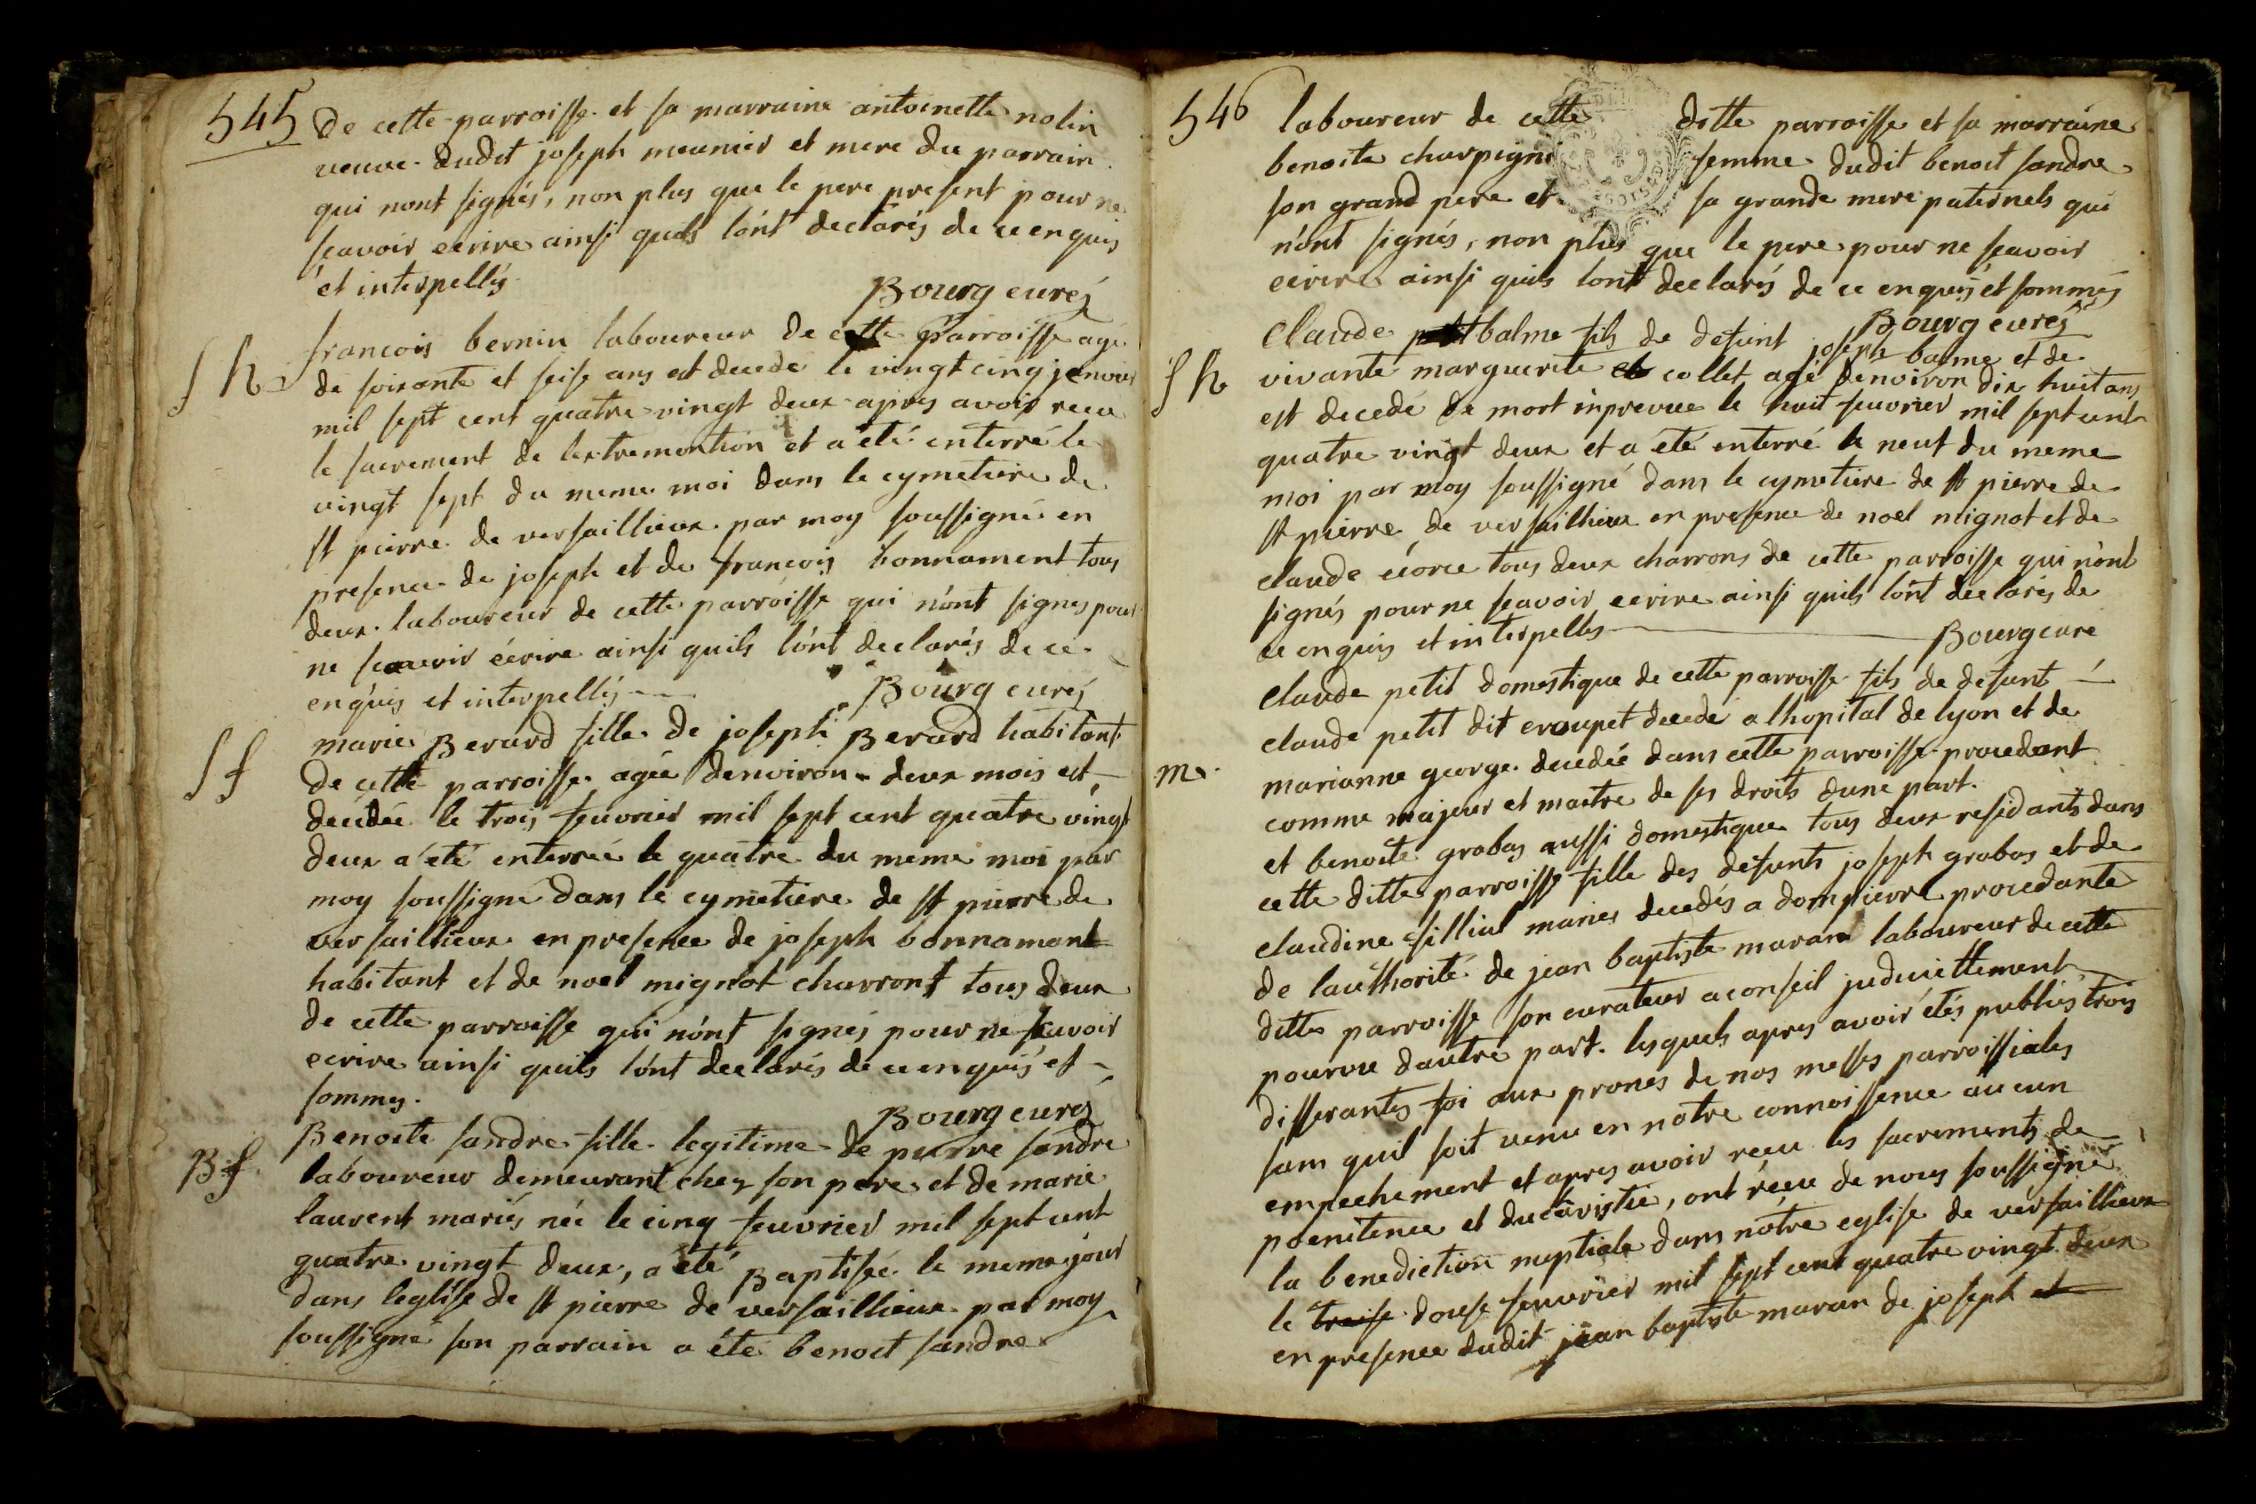 545 De cette parroisse et sa marraine antoinette nolin
veuve dudit joseph meunier et mere du parrain
qui nont signés, non plus que le pere present pour ne
scavoir ecrire ainsi quils lont declarés de ce enquis
et interpellés
Bourg curé
s h francois bernin laboureur de cette parroisse agé
de soixante et seise ans est decedé le vingt cinq jenvier
mil sept cent quatre vingt deux apres avoir recu
le sacrement de lextremontion et a été enterré le
vingt sept du meme moi dans le cymetiere de
st pierre de versaillieux par moy soussigné en
presence de joseph et de francois bonnament tous
deux laboureur de cette parroisse qui n'ont signes pour
ne scavoir écrire ainsi quils l'ont declarés de ce
enquis et interpellés
Bourg curé
s f marie Berard fille de joseph Berard habitant
de cette parroisse agée denviron deux mois est
decedée le trois feuvrier mil sept cent quatre vingt
deux a été enterrée le quatre du meme moi par
moy soussigné dans le cymetiere de st pierre de
versaillieux en presence de joseph bonnamont
habitant et de noel mignot charront tous deux
de cette parroisse qui n'ont signés pour ne scavoir
ecrire ainsi quils l'ont declarés de ce enquis et
sommes.
Bourg curé
B f Benoite sandre fille legitime de pierre sandre
laboureur demeurant chez son pere et de marie
laurent mariés née le cinq feuvrier mil sept cent
quatre vingt deux, a été Baptisée le meme jour
dans leglise de st pierre de versaillieux par moy
soussigné son parrain a été benoit sandre
546 laboureur de cette ditte parroisse et sa marraine
benoite charpigni femme dudit benoit sandre
son grand pere et sa grande mere paternels qui
n'ont signés, non plus que le pere pour ne scavoir
ecrire ainsi quils lont declarés de ce enquis et sommés
Bourg curé
Claude balme fils de defunt joseph balme et de
s h vivante marguerite collet agé denviron dix huit ans
est decedé de mort inprevue le huit feuvrier mil sept cent
quatre vingt deux et a été enterré le neuf du meme
moi par moy soussigné dans le cymetiere de st pierre de
st pierre de versaillieux en presence de noel mignot et de
claude ecorce tous deux charrons de cette parroisse qui n'ont
signés pour ne scavoir ecrire ainsi quils l'ont declarés de
ce enquis et interpellés
Bourg cure
Claude petit domestique de cette parroisse fils de defunt
claude petit dit croupet decedé a lhopital de lyon et de
m. marianne george decedée dans cette parroisse procedant
comme majeur et maitre de ses droits dune part.
et benoite grobos aussi domestique tous deux residants dans
cette ditte parroisse fille des defunts joseph grobos et de
claudine fillial mariés decedés a dompierre procedante
de l'authorité de jean baptiste maran laboureur de cette
ditte parroisse son curateur a conseil juduciellement
pourvu dautre part. lesquels apres avoir étés publiés trois
differantes foi aux prones de nos messes parroissiales
sans quil soit venu en notre connoissence aucun
empechement et apres avoir recu les sacrements de
poenitence et ducaristie, ont récu de nous soussigné
la benediction nuptiale dans nôtre eglise de versaillieux
le treise douse feuvrier mil sept cent quatre vingt deux
en presence dudit jean baptiste maran de joseph et